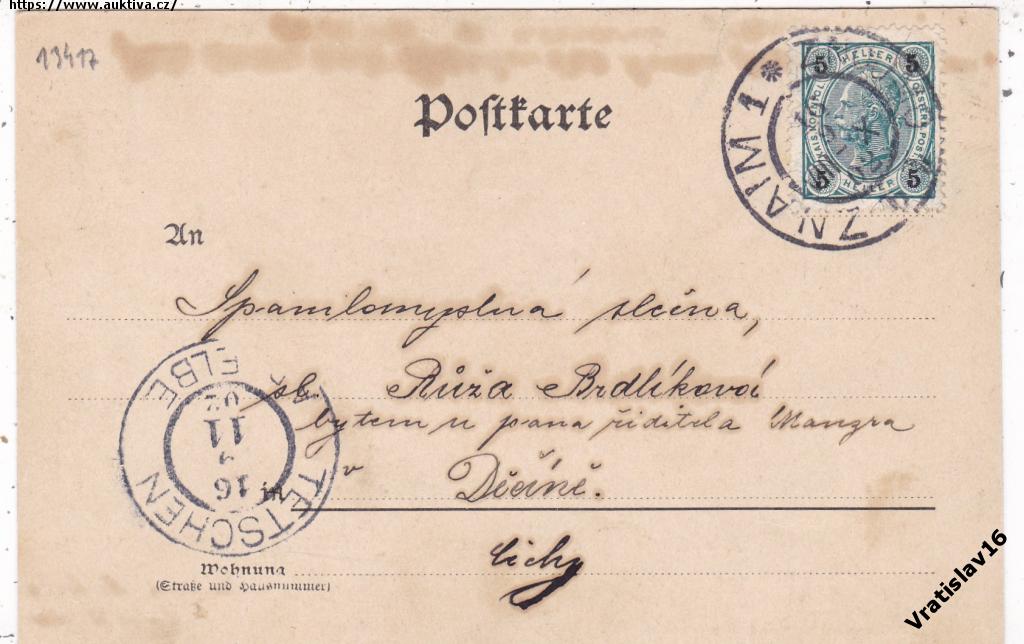 https://www.auktiva.cz/
13417
Postkarte
5 HELLER 5
KAIS. KOENIGL. OESTERR. POST
5 HELLER 5
ZNAIM 1
An
Spanilomyslná slečna,
sl. Růža Brdlíková
bytem u pana řiditela Mangra
v Děčíně.
in
TETSCHEN A ELBE
16
11
02
Wohnung
(Straße und Hausnummer)
Čechy
Vratislav16